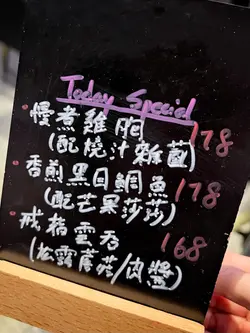 Today Special
慢煮雞胸 178
(配燒汁雜菌)
香煎黑目鯛魚 178
(配芒果莎莎)
雲吞 168
(松露蘑菇/肉醬)